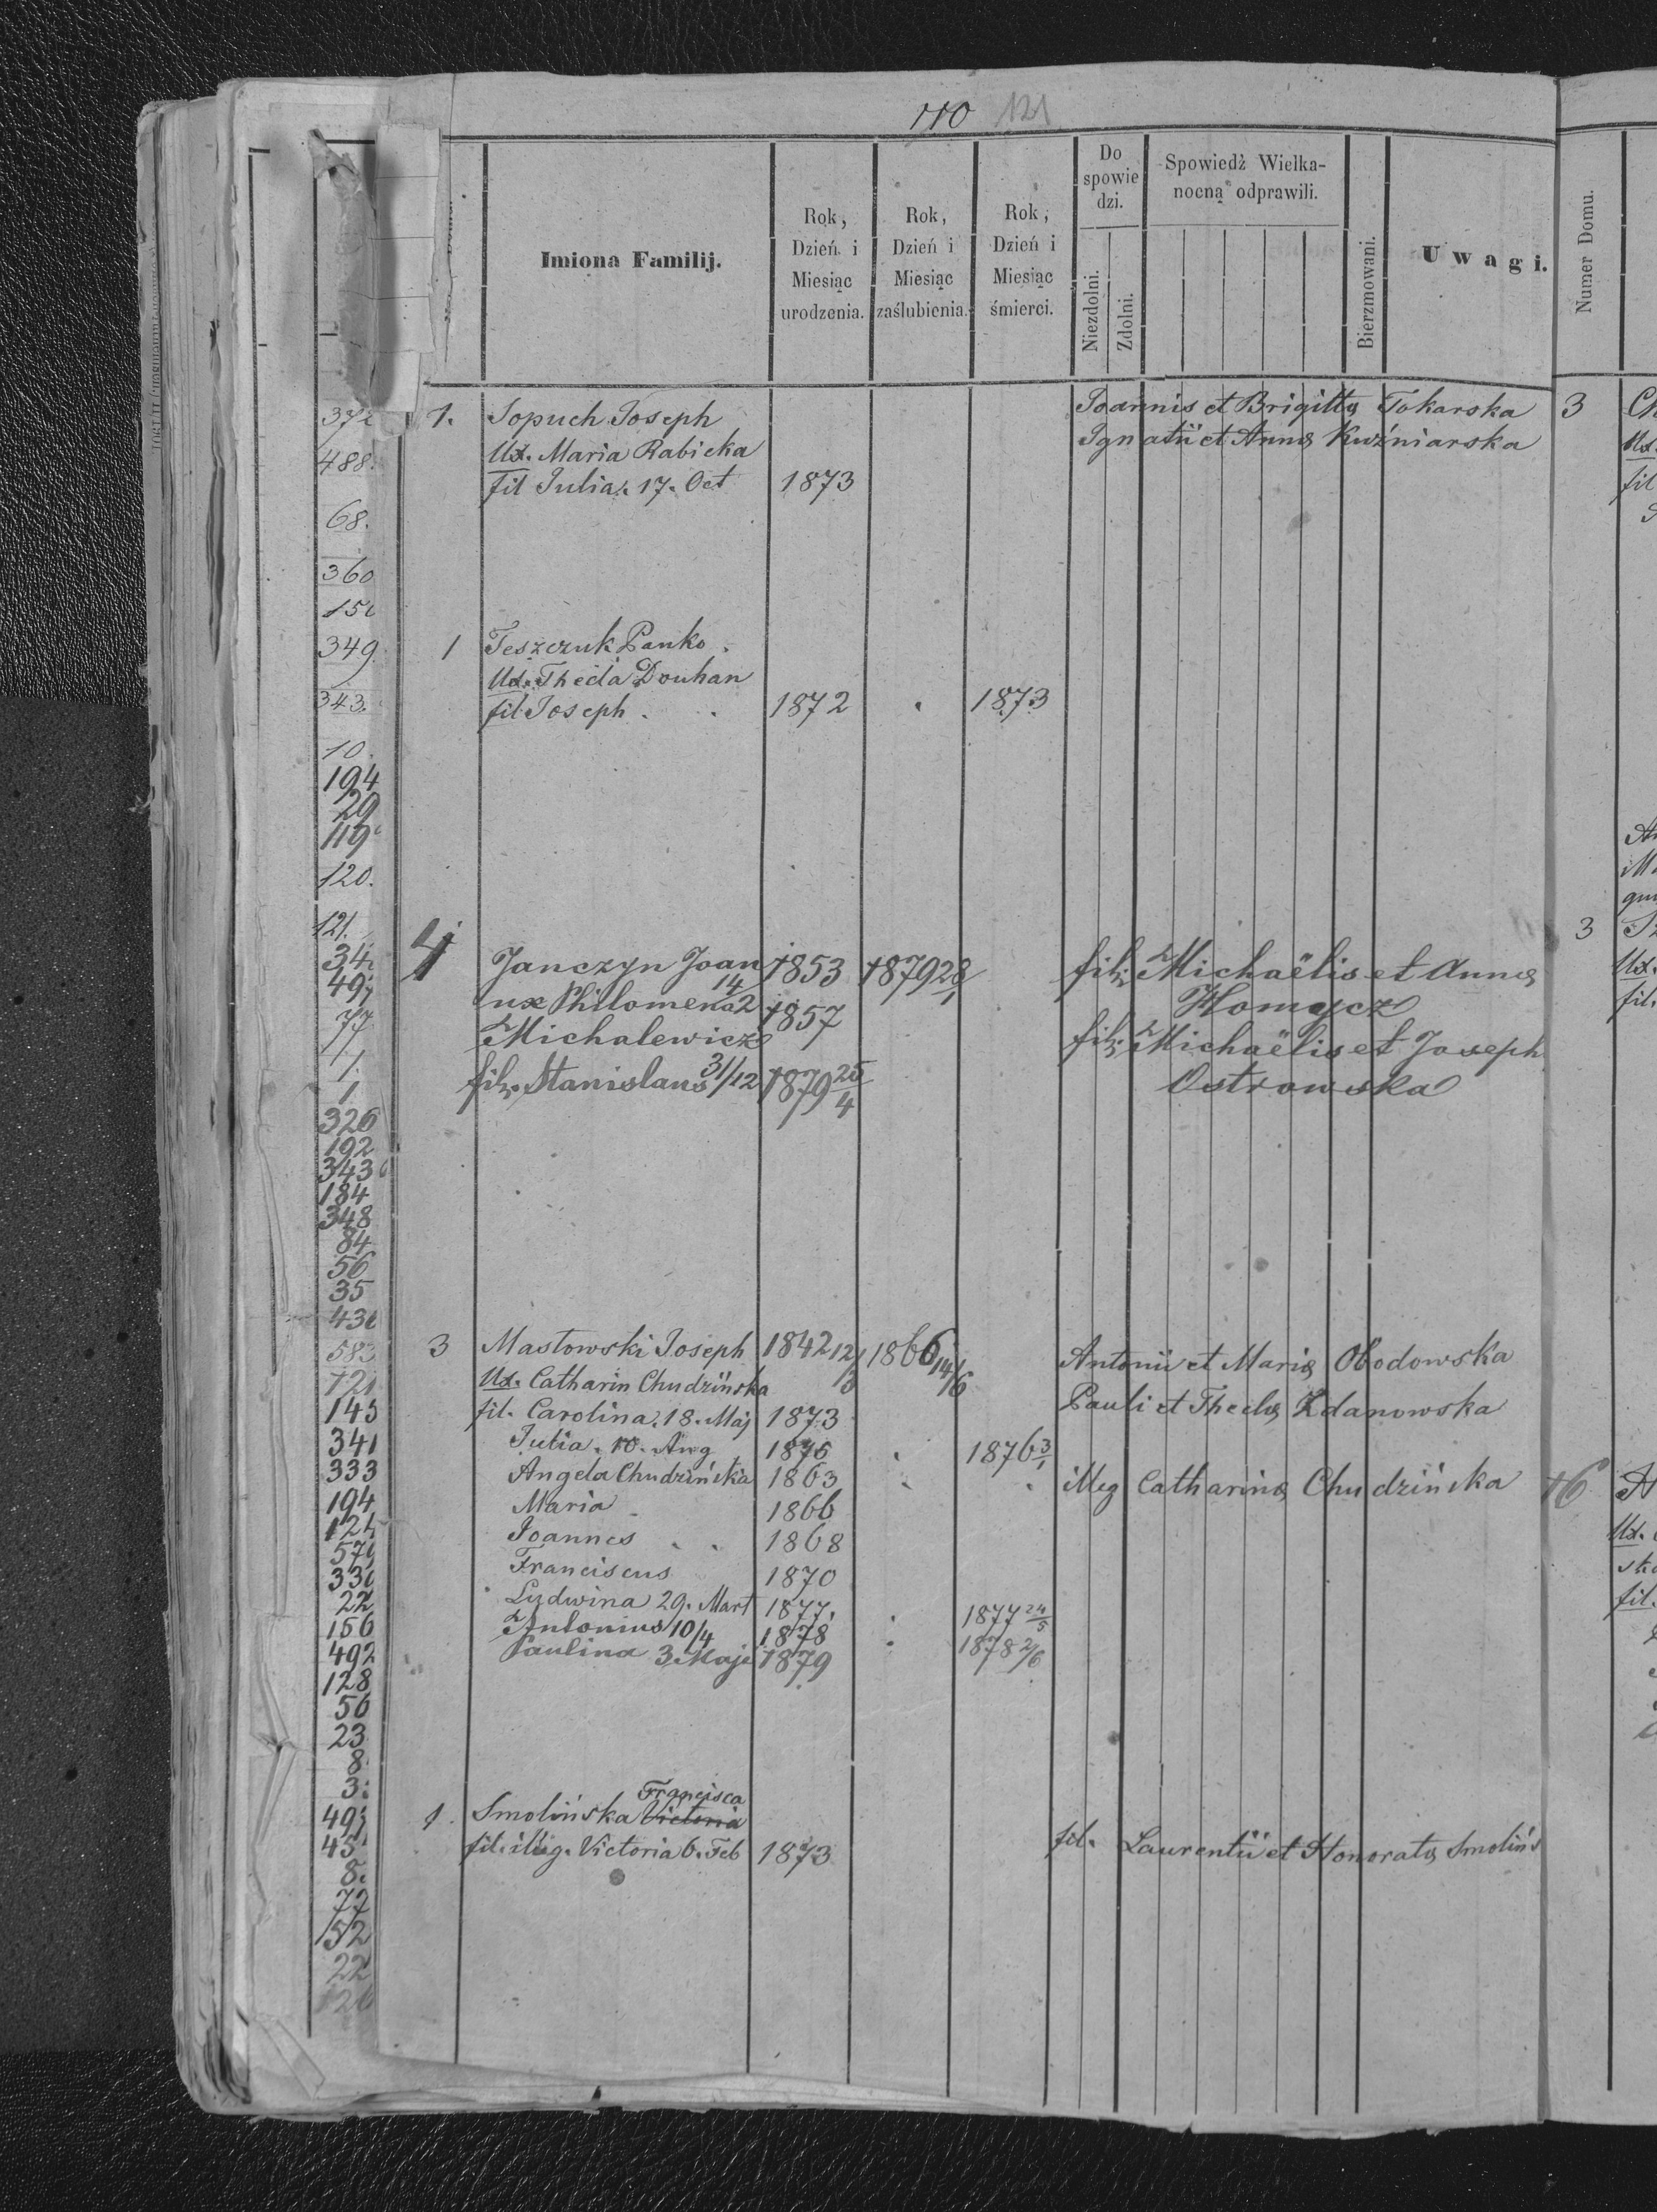 110 121
Imiona Familij.
Rok, Dzień i Miesiąc urodzenia.
Rok, Dzień i Miesiąc zaślubienia.
Rok, Dzień i Miesiąc śmierci.
Do spowiedzi.
Niezdolni.
Zdolni.
Spowiedź Wielkanocną odprawili.
Bierzmowani.
Uwagi.
Numer Domu.
1. Sopuch Joseph Joannis et Brigittę Tokarska
Ux. Maria Rabicka Ignatii et Annę Kuźniarska
fil Julia. 17. Oct 1873
1 Teszczuk Panko.
Ux. Thecla Douhan
fil. Joseph . . 1872 . 1873
4 Janczyn Joan 1853 1879 28/1 fil. Michaëlis et Annę
ux Philomena 14/2 1857 Homycz
Michalewicz fil. Michaëlis et Joseph
fil. Stanislaus 31/12 1879 25/4 Ostrowska
3 Masłowski Joseph 1842 12/3 1866 14/6 Antonii et Marię Obodowska
Ux. Catharin Chudzińska Pauli et Theclę Zdanowska
fil. Carolina. 18. Maj 1873
Julia. 10. Aug 1875 . 1876 3/1
Angela Chudzińska 1863 . . illeg Catharinę Chudzińska
Maria 1866
Joannes . . 1868
Franciscus 1870
Ludwina 29. Mart 1877. . 1877 24/5
Antonius 10/4 1878 . 1878 2/6
Paulina 3 Maji 1879
Francisca
1. Smolińska Victoria
fil. illeg. Victoria 6. Feb 1873 fil. Laurentii et Honoratę Smolińs
488.
68.
360
349
343.
10.
194
29
119
120.
121.
77
1.
1
326
192
343
184
348
84
56
35
583
121
145
341
333
194
124
22
156
492
128
56
23
8
3.
8.
77
152
22
3
Ux.
fil
3
Ux.
fil.
16
Ux.
fil.